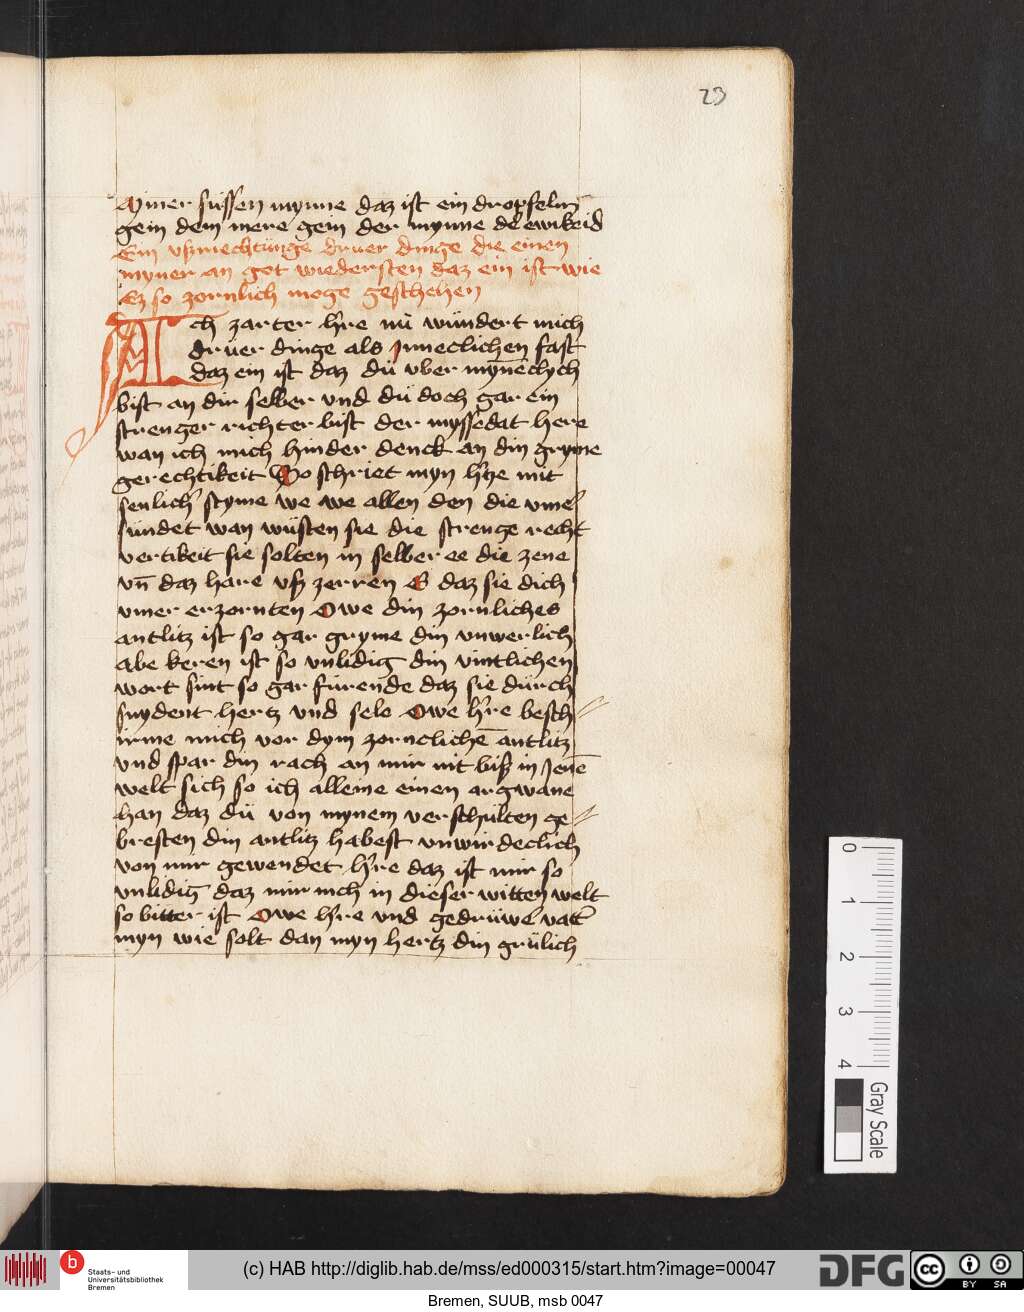 23
Miner sussen mynne daz ist ein dropfelin
gein dem mere gein der mynne de ewikeid
Ein vßriechtunge druer dinge die einen
mynner an got wiedersten daz ein ist wie
Ez so zornlich moge geschehen
Ach zarter h're nu wundert mich
druer dinge als Jnneclichen fast
daz ein ist daz du vber mynneclych
bist an dir selber vnd du doch gar ein
strenger richter bist der myssedat here
wan ich mich hinder denck an din gryme
gerechtikeit So schriet myn h'tze mit
senlich' styme we we allen den die vmer
sundet wan wüsten sie die strenge recht
vertikeit sie solten in selber ee die zene
vn̄ daz hare vß zerren E daz sie dich
vmer erzornten Owe din zornliches
antlitz ist so gar gryme din vnwerlich
abe keren ist so vnlidig din vintlichen
wort sint so gar fürende daz sie dürch
snydent hertz vnd sele Owe h're besch
irme mich vor dym zornclichē antlitz
vnd spar din rach an mir nit biß in Jenē
welt sich so ich alleine einen argwane
han daz dü von mynem verschulten ge
bresten din antlitz habest vnwirdeclich
von mir gewendet h're daz ist mir so
vnlidig daz mir nich in dieser witten welt
so bitter ist Owe h're vnd gedrüwer vatt'
myn wie solt dan myn hertz din grülich
0
1
2
3
4
Gray Scale
b
Staats- und
Universitätsbibliothek
Bremen
(c) HAB http://diglib.hab.de/mss/ed000315/start.htm?image=00047
DFG
cc
BY SA
Bremen, SUUB, msb 0047